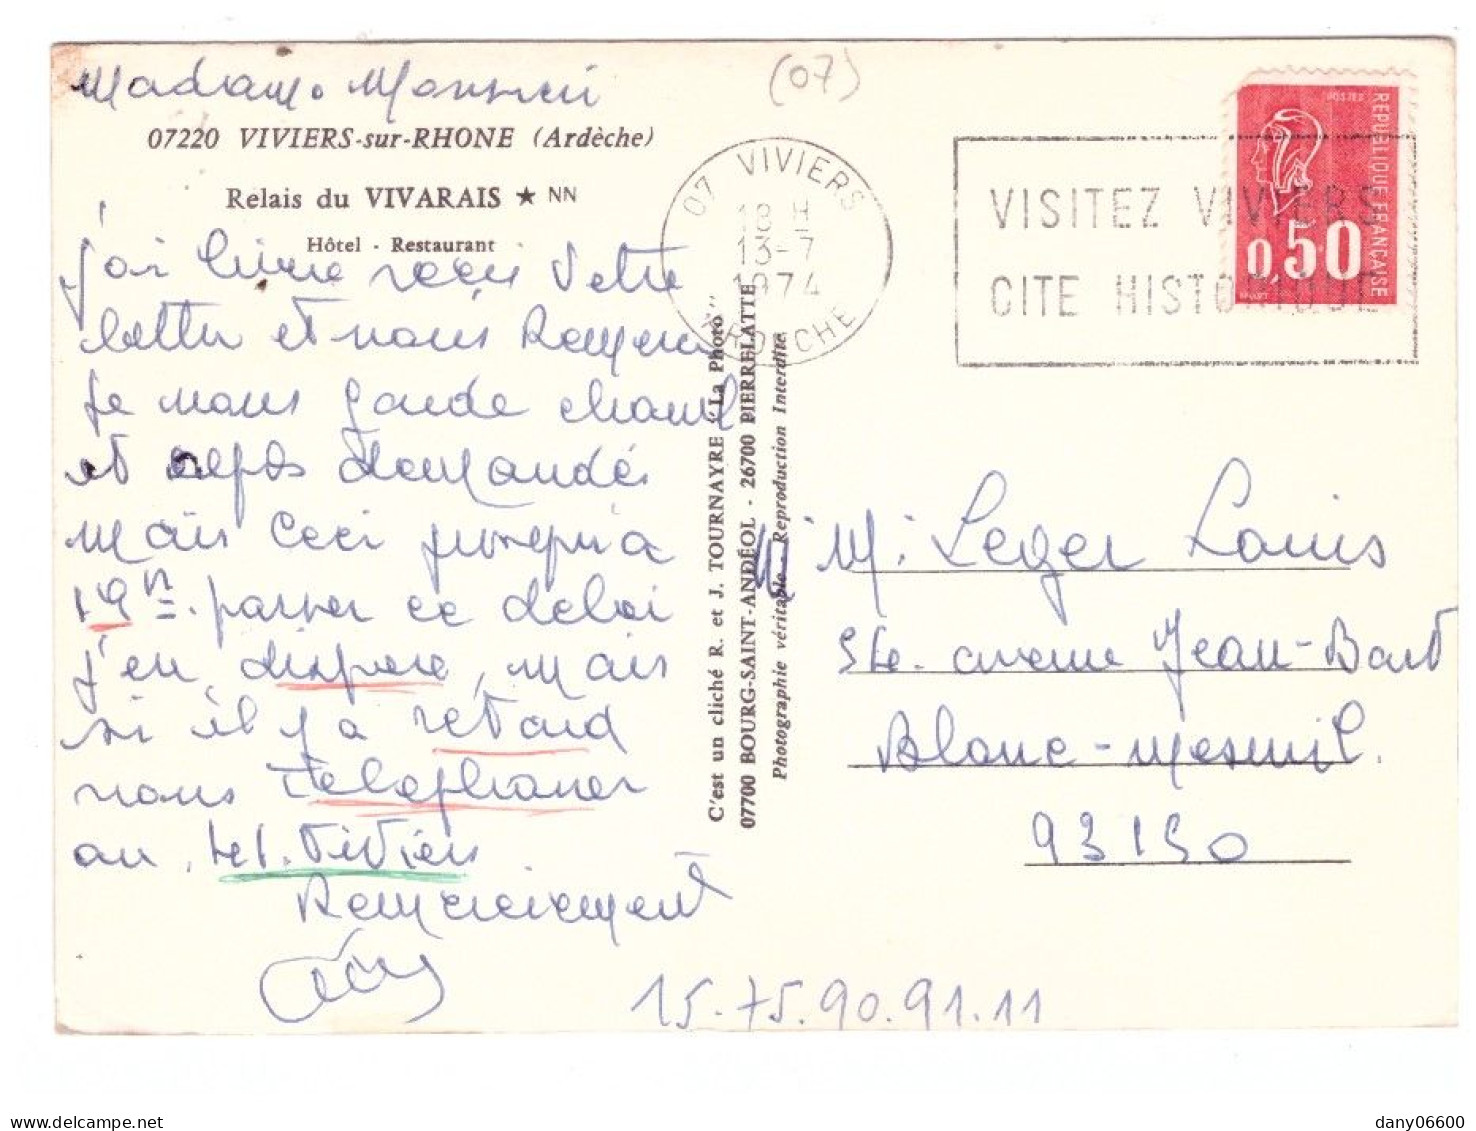 (07)
Madame Monsieur
07220 VIVIERS-sur-RHONE (Ardèche)
Relais du VIVARAIS ★ NN
Hôtel - Restaurant
j'ai bien reçu votre
lettre et nous
Je vous garde
et demandés
Mais ceci jusqu'a
19 h. passer ce delai
j'en dispose, mais
si il y a retard
nous telephoner
au tel. Viviers
Remerciement
07 VIVIERS
18 H
13-7
1974
ARDECHE
VISITEZ VIVIERS
CITE HISTORIQUE
POSTES
REPUBLIQUE FRANÇAISE
0,50
C'est un cliché R. et J. TOURNAYRE "La Photo"
07700 BOURG-SAINT-ANDÉOL - 26700 PIERRELATTE
Photographie véritable. Reproduction Interdite.
M. Leger Louis
avenue Jean-Bart
Blanc-Mesnil.
93150
15.75.90.91.11
dany06600